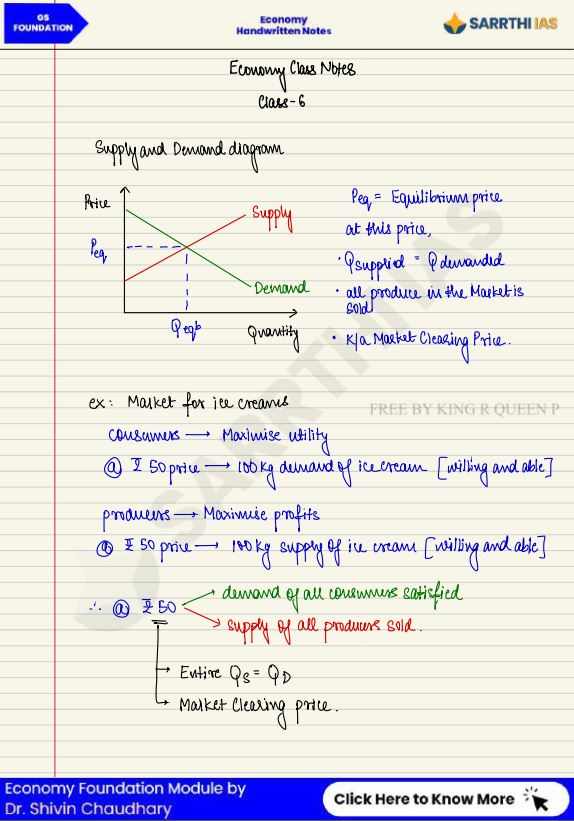 GS
FOUNDATION
Economy
Handwritten Notes
SARRTHI IAS
Economy Class Notes
Class-6
Supply and Demand diagram
Price
Supply
Peq
Demand
Qeqb
Quantity
Peq = Equilibrium price
at this price,
• Qsupplied = Qdemanded
• all produce in the Market is
sold
• K/a Market Clearing Price.
SARRTHI IAS
FREE BY KING R QUEEN P
ex: Market for ice creams
consumers → Maximise utility
@ ₹ 50 price → 100 kg demand of ice cream [willing and able]
producers → Maximise profits
@ ₹ 50 price → 100 kg supply of ice cream [willing and able]
∴ @ ₹ 50
→ demand of all consumers satisfied
→ supply of all producers sold.
→ Entire QS = QD
→ Market Clearing price.
Economy Foundation Module by
Dr. Shivin Chaudhary
Click Here to Know More